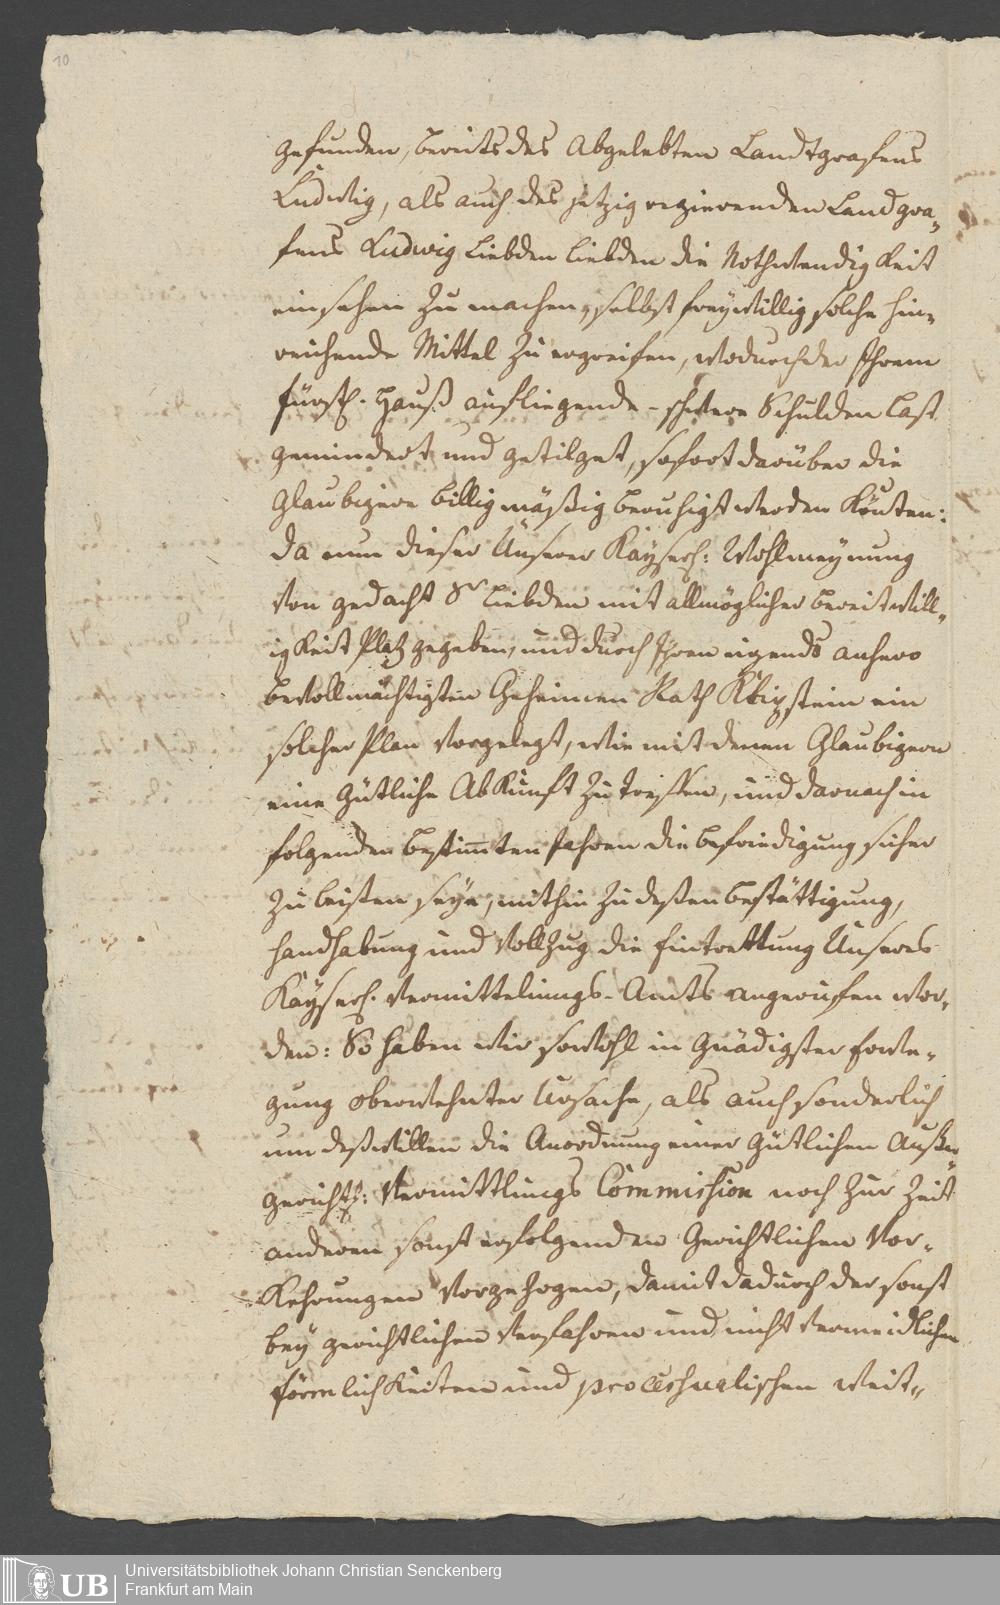 10
gefunden, bereits des Abgelebten Landtgrafens
Ludwig, als auch des jetzig regierenden Landgra„
fens Ludwig Liebden Liebden die Nothwendigkeit
einsehen zu machen, selbst freywillig solche hin„
reichende Mittel zu ergreifen, wodurch der Ihrem
fürstl. Hauß aufliegende-schwere Schulden Last
gemindert und getilget, sofort darüber die
Glaubigere billigmäßig beruhigt werden könten:
da nun dieser Unserer Kayserl: Wohlmeynung
von gedacht Sr Liebden mit allmöglicher bereitwill„
igkeit Platz gegeben, und durch Ihren eigends anhero
bevollmächtigten Geheimen Rath ein
solcher Plan vorgelegt, wie mit denen Glaubigern
eine Gütliche Abkunft zu treffen, und darnach in
folgenden bestimten Jahren die befriedigung sicher
zu leisten seye, mithin zu deßen bestättigung,
handhabung und Vollzug die Eintrettung Unseres
Kayserl. Vermittelungs-Amts angerufen wor„
den: So haben wir sowohl in Gnädigster Erwe„
gung oberwehnter Ursache, als auch sonderlich
um deßwillen die Anordnung einer Gütlichen Außer„
gerichtl: Vermittlungs Commission noch zur Zeit
anderen sonst erfolgenden Gerichtlichen Vor„
kehrungen vorgezogen, damit dadurch der sonst
bey gerichtlichen Verfahren und nicht vermeidlichen
förmlichkeiten und processualischen Weit„
UB
Universitätsbibliothek Johann Christian Senckenberg
Frankfurt am Main